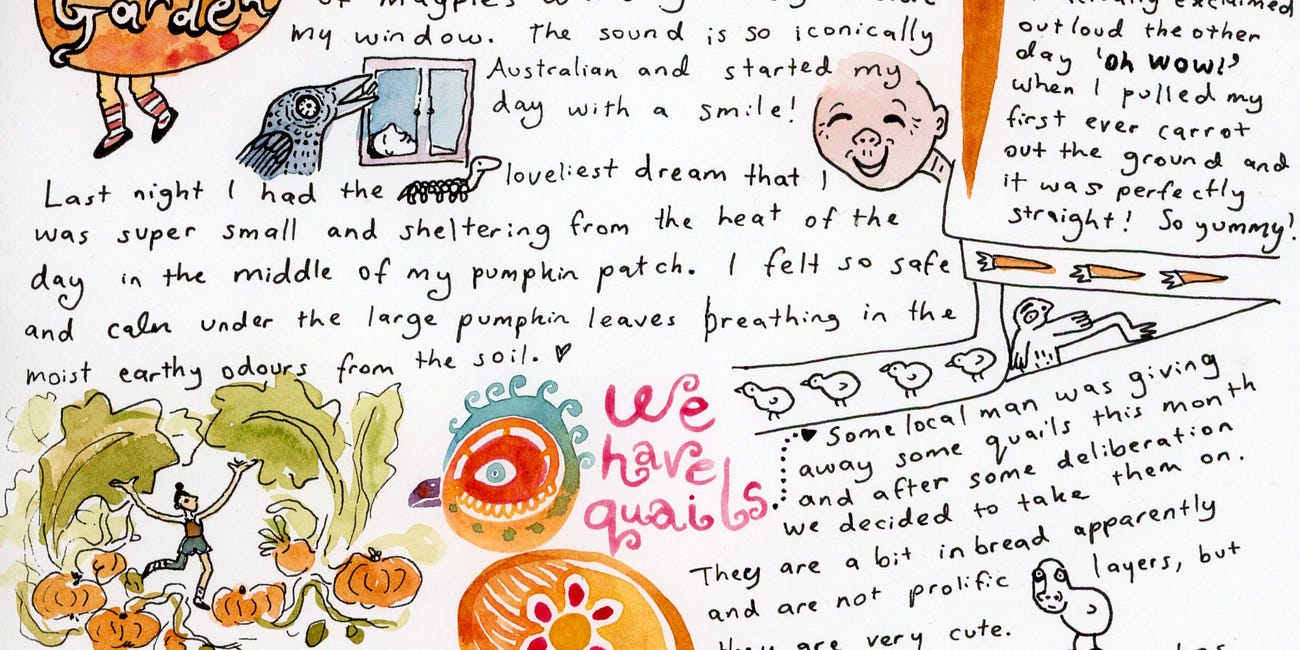 Garden
of Magpies
my window. The sound is so iconically
Australian and started my
day with a smile!
Last night I had the loveliest dream that I
was super small and sheltering from the heat of the
day in the middle of my pumpkin patch. I felt so safe
and calm under the large pumpkin leaves breathing in the
moist earthy odours from the soil.
exclaimed
out loud the other
day 'oh wow!'
when I pulled my
first ever carrot
out the ground and
it was perfectly
straight! So yummy!
We
have
quails
Some local man was giving
away some quails this month
and after some deliberation
we decided to take them on.
They are a bit inbread apparently
and are not prolific layers, but
they are very cute.